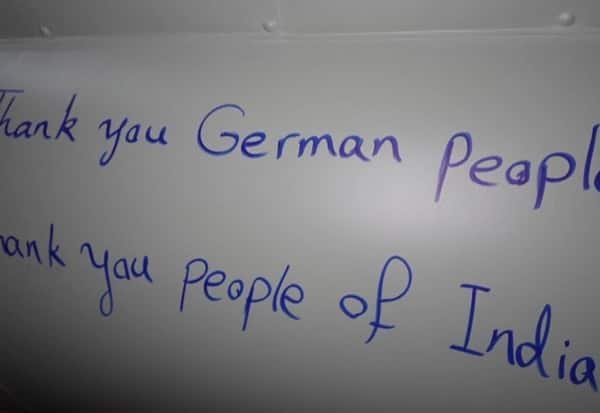 Thank you German People
Thank you people of India